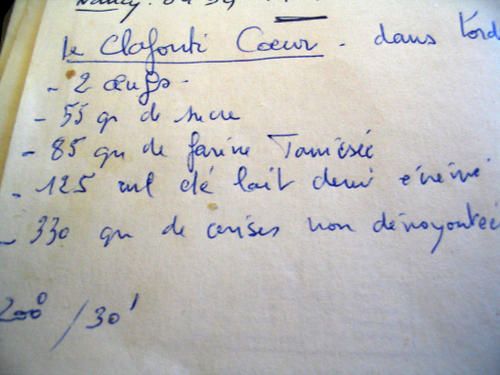 le Clafouti Coeur - dans l'ord
- 2 œufs -
- 55 gr de sucre
- 85 gr de farine Tamisée
- 125 ml de lait demi écrémé
- 330 gr de cerises non dénoyautée
200° / 30'